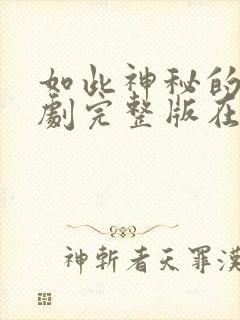 如此神秘的
劇完整版在
神斬者天罪漢